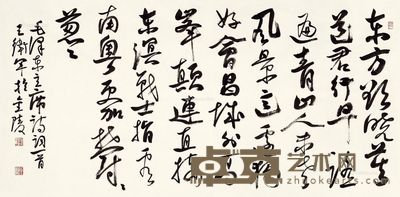 东方欲晓莫
道君行早踏
遍青山人未老
风景这边独
好会昌城外高
峯颠连直接
东溟战士指看
南粤更加郁々
葱々
毛泽东主席诗词一首
王衛军於金陵
艺术网